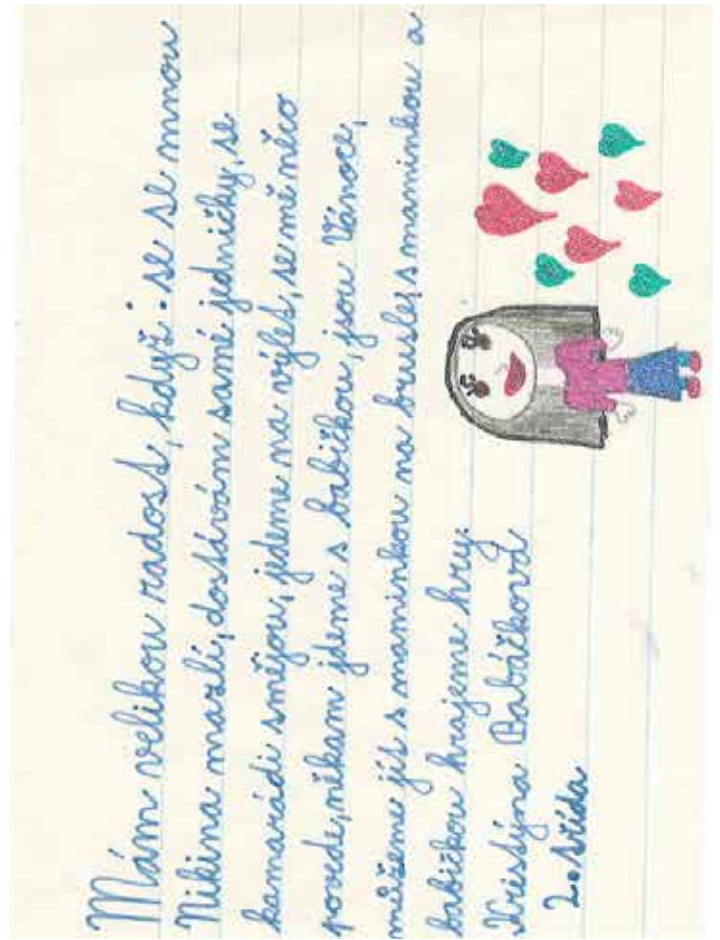 Mám velikou radost, když: se se mnou
Nikina mazlí, dostávám samé jedničky, se
kamarádi smějou, jedeme na výlet, se mě něco
povede, někam jdeme s babičkou, jsou Vánoce,
můžeme jít s maminkou na brusle, s maminkou a
babičkou hrajeme hry.
Kristýna Babáčková
2. třída